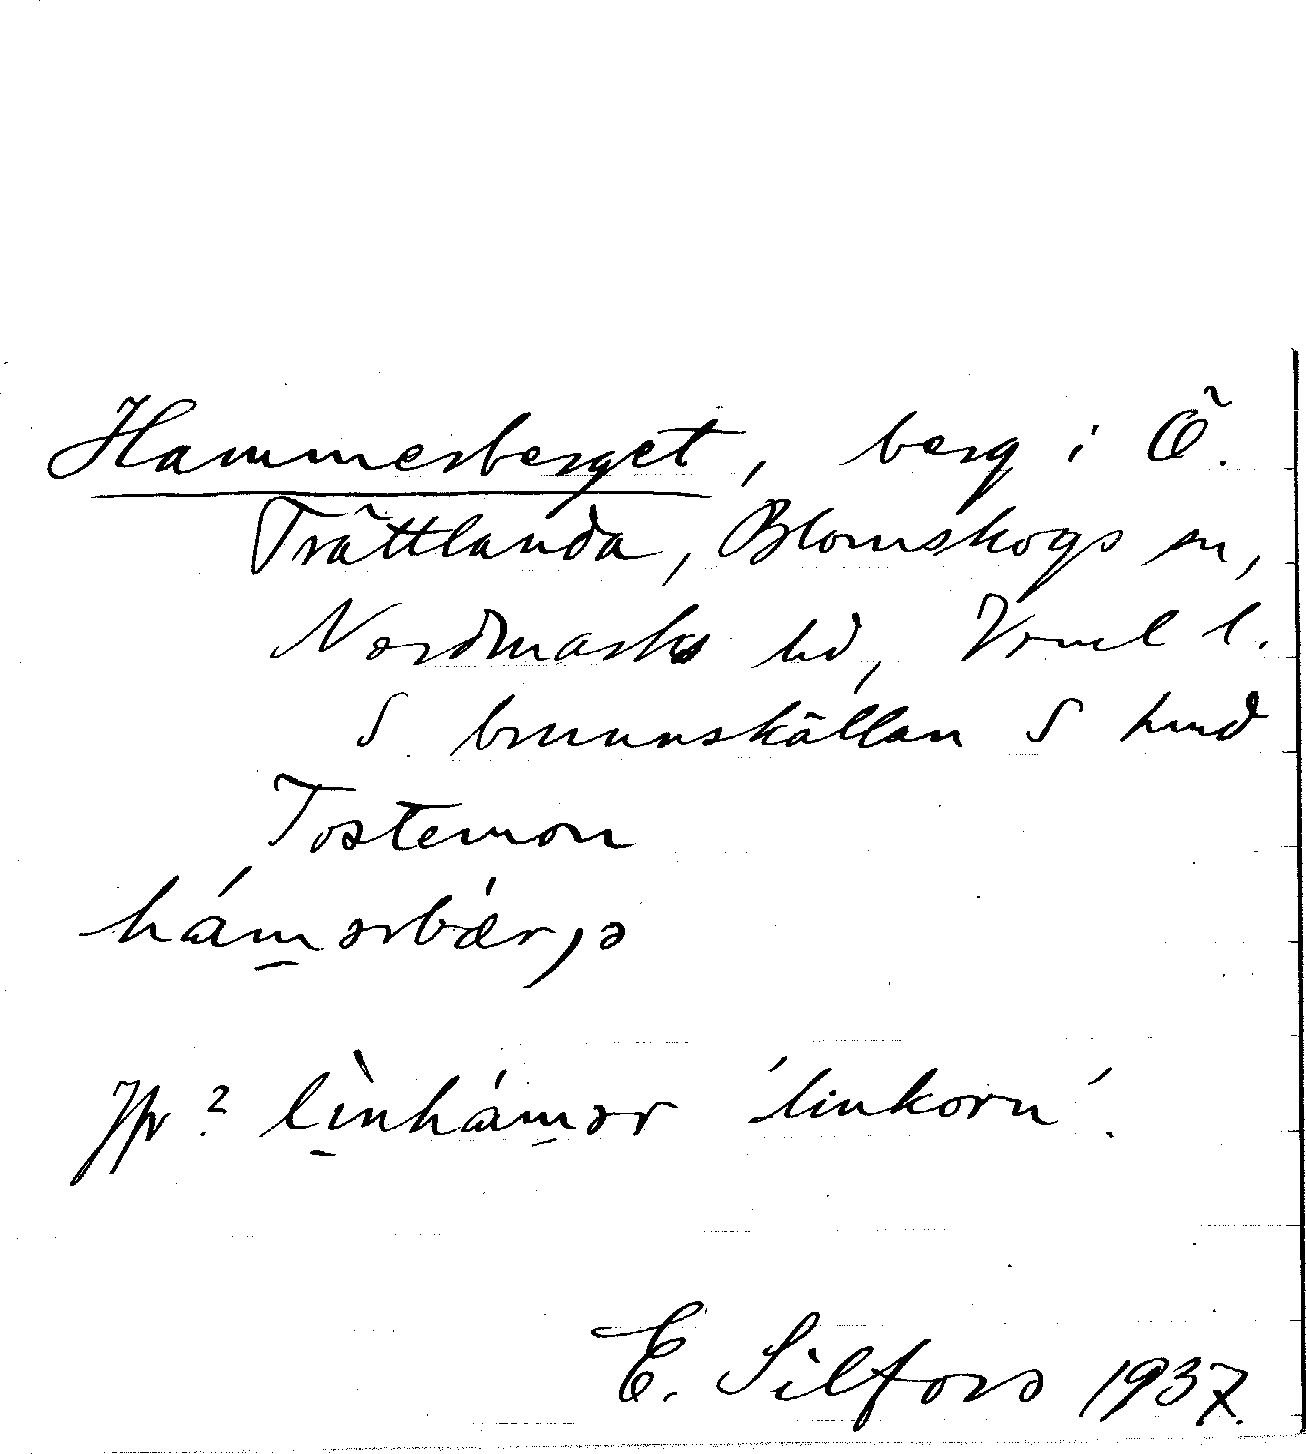 Hammerberget, berg i Ö.
Trättlanda, Blomskogs sn,
Nordmarks hd, Vrml l.
S brunnskällan S hmd
Tostemon
hám̱ərbǽrjə
Jfr? lìṉhám̱ər 'linkorn'.
E. Silfors 1937.